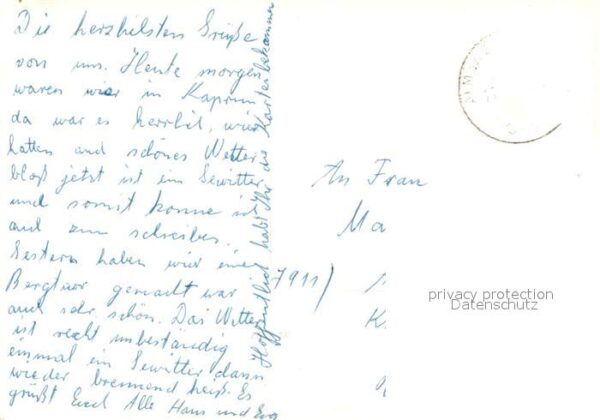 Die herzhilsten Grüße
von uns. Heute morgen
waren wier in Kaprun
da war es herrlit, wier
hatten auch schönes Wetter
bloß jetzt ist ein Gewitter
und somit komme ich
auch zum schreiben.
Gestern haben wier eine
Bergtuor gemacht war
auch sehr schön. Das Wetter
ist recht unbeständig
einmal ein Gewitter dann
wieder brennend heiß. Es
grüßt Euch Alle Hans und
Hoffentlich habt Ihr die Karten bekommen
An Frau
Ma
7911/
K
privacy protection
Datenschutz